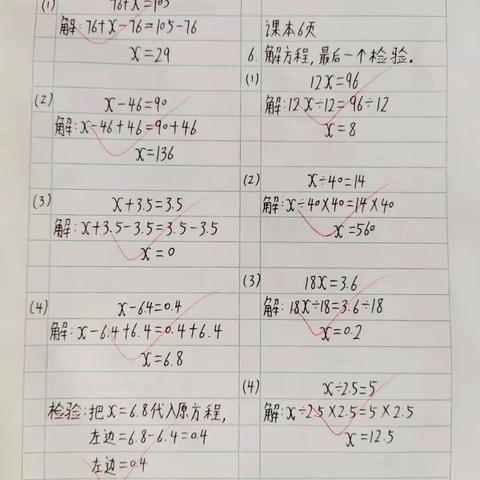 (1) 76+x=105
解:76+x-76=105-76
x=29
(2) x-46=90
解:x-46+46=90+46
x=136
(3) x+3.5=3.5
解:x+3.5-3.5=3.5-3.5
x=0
(4) x-64=0.4
解:x-6.4+6.4=0.4+6.4
x=6.8
检验:把x=6.8代入原方程,
左边=6.8-6.4=0.4
左边=0.4
课本6页
6.解方程,最后一个检验.
(1) 12x=96
解:12x÷12=96÷12
x=8
(2) x÷40=14
解:x÷40×40=14×40
x=560
(3) 18x=3.6
解:18x÷18=3.6÷18
x=0.2
(4) x÷2.5=5
解:x÷2.5×2.5=5×2.5
x=12.5